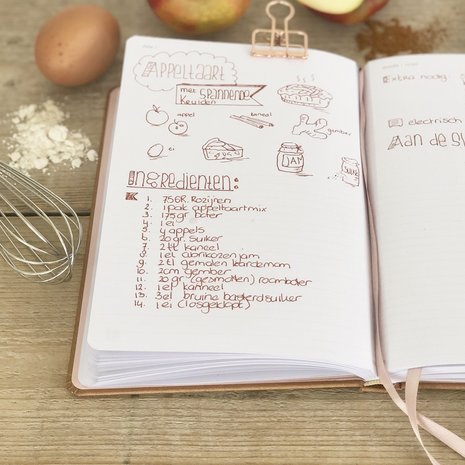 Appeltaart
met SPANNENDE
Kruiden
appel
kaneel
gember
ei
JAM
Ingredienten:
1. 75GR. Rozijnen
2. 1 pak appeltaartmix
3. 175gr boter
4. 1 ei
5. 4 appels
6. 20 gr. suiker
7. 2tl kaneel
8. 1 el abrikozenjam
9. 2tl gemalen kardemom
10. 2cm gember
11. 20 gr (gesmolten) roomboter
12. 1 el kanneel
13. 3el bruine basterdsuiker
14. 1 ei (losgeklopt)
Extra nodig:
electrisch
Aan de sl